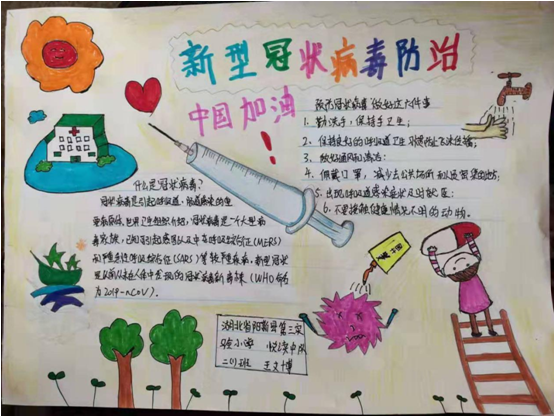 新型冠状病毒防治
中国加油
!
预防冠状病毒 做好这六件事
1. 勤洗手,保持手卫生;
2. 保持良好的呼吸道卫生习惯
3. 做好通风和清洁;
4. 佩戴口罩,减少去公共场所
5. 出现呼吸道感染症状及时就医;
6. 不要接触健康情况不明的动物。
什么是冠状病毒?
冠状病毒是引起呼吸道、肠道感染的重
要病原体。世界卫生组织介绍,冠状病毒是一个大型病
毒家族,已知可引起感冒以及中东呼吸综合征(MERS)
和严重急性呼吸综合征(SARS)等较严重疾病。新型冠状
(WHO命名
为2019-nCoV)。
湖北省
第三实
验小学
二(1)班 王文博